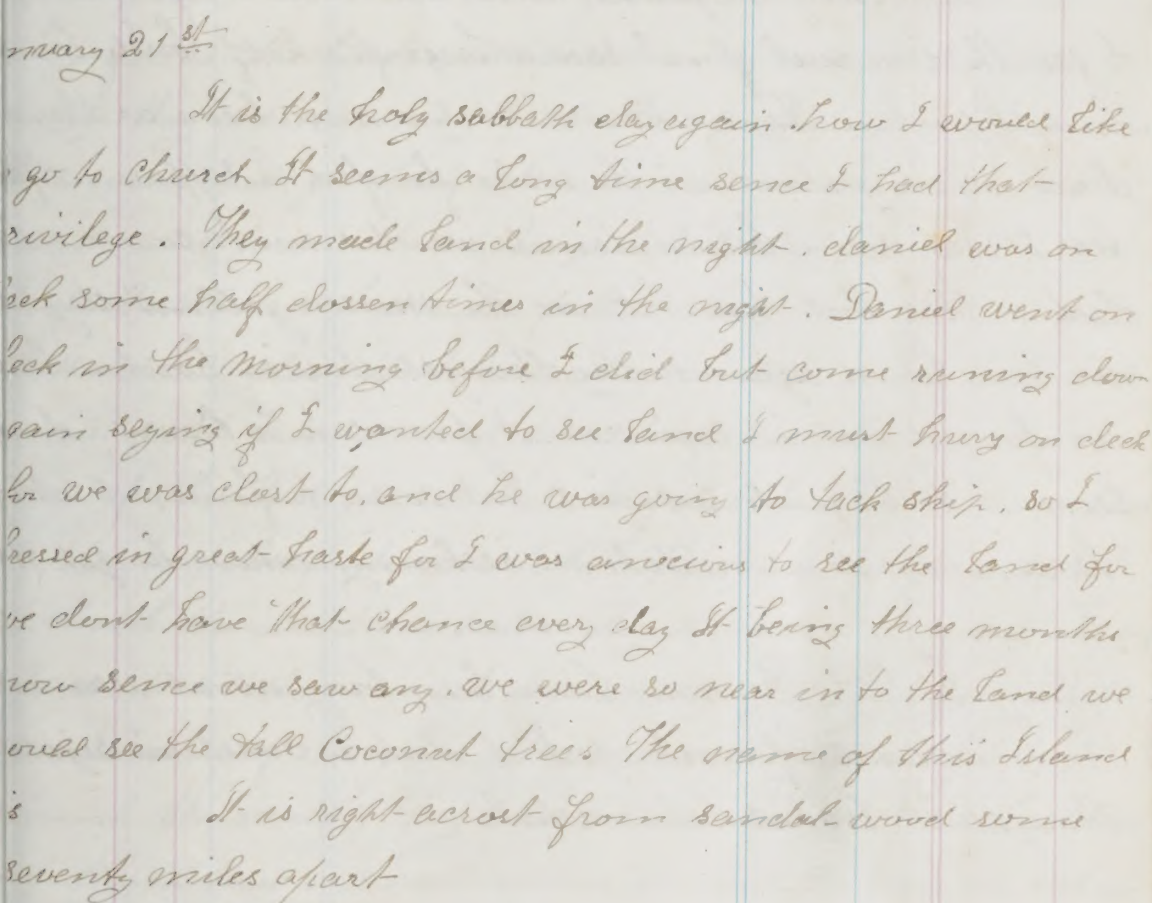 nuary 21st
It is the holy sabbath day again. how I would like
go to church It seems a long time sence I had that
rivilege. They made land in the night. daniel was on
eck some half dossen times in the night. Daniel went on
eck in the morning before I did but come runing down
gain seying if I wanted to see land I must hury on deck
for we was clost to, and he was going to tack ship. so I
ressed in great haste for I was anxious to see the land for
we dont have that chance every day It being three months
now sence we saw any. we were so near in to the land we
ould see the tall Coconut trees The name of this Island
is It is right acrost from sandal-wood some
seventy miles apart